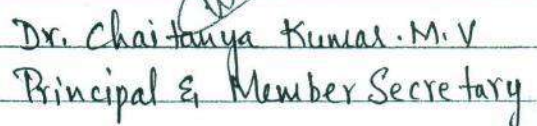 Dr. Chaitanya Kumar. M. V
Principal & Member Secretary